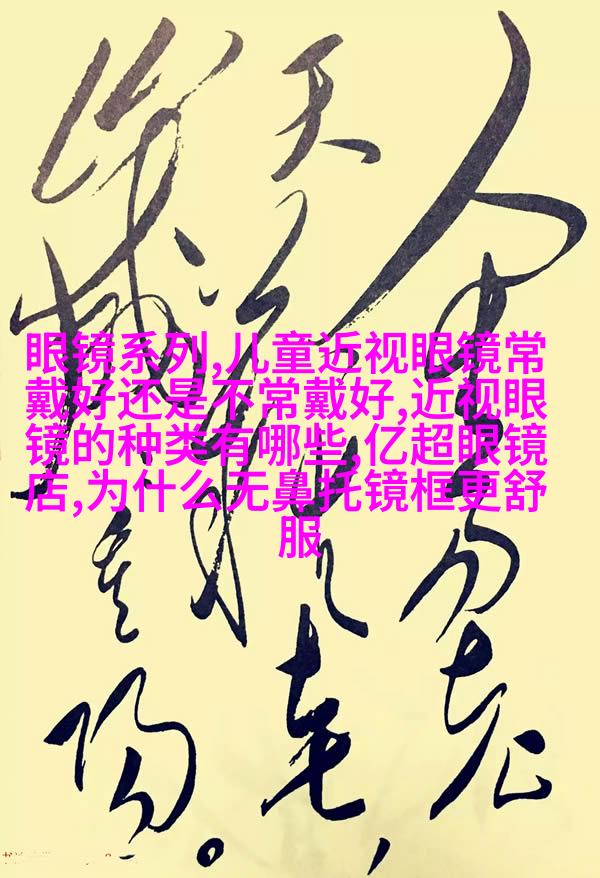 眼镜系列,儿童近视眼镜常
戴好还是不常戴好,近视眼
镜的种类有哪些,亿超眼镜
店,为什么无鼻托镜框更舒
服
人生易老
天难老,
岁岁重阳。